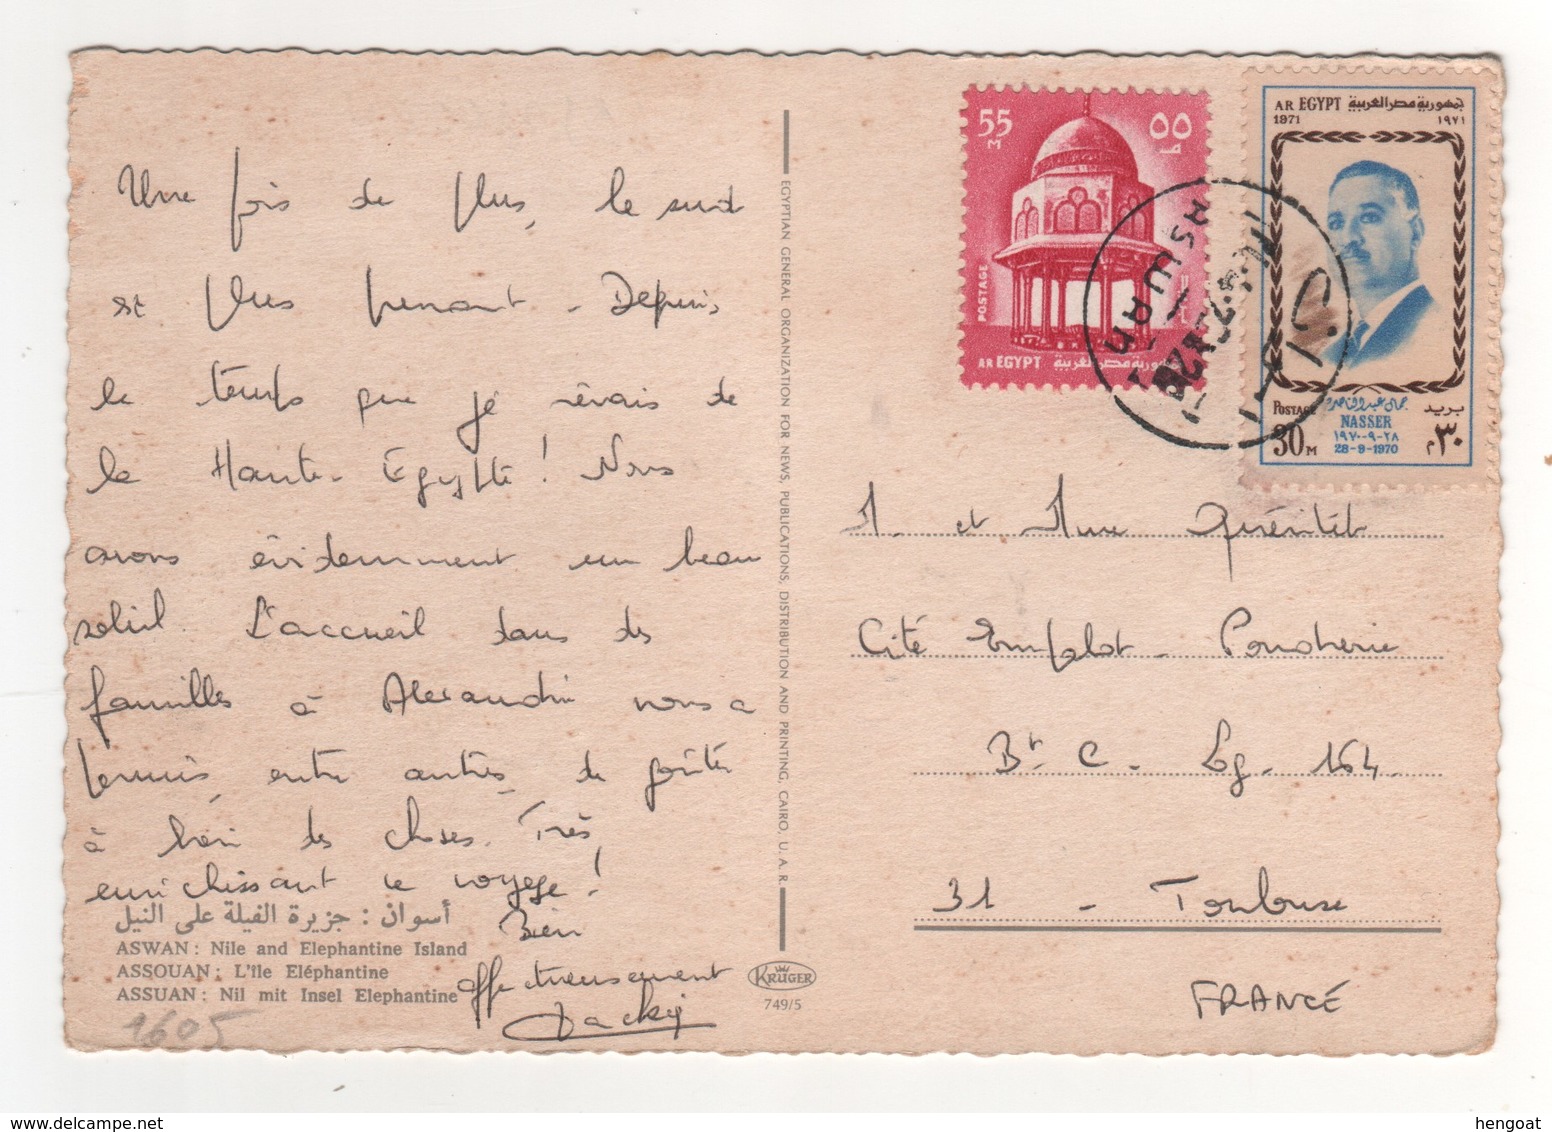 Une fois de plus, le sud
est plus prenant - Depuis
le temps que je rêvais de
la Haute-Egypte! Nous
avons évidemment un beau
soleil. L'accueil dans des
familles à Alexandrie nous a
permis, entre autres, de goûter
à bien des choses. Très
enrichissant ce voyage!
Bien
affectueusement
Jacky
أسوان : جزيرة الفيلة على النيل
ASWAN: Nile and Elephantine Island
ASSOUAN: L'île Eléphantine
ASSUAN: Nil mit Insel Elephantine
1605
EGYPTIAN GENERAL ORGANIZATION FOR NEWS, PUBLICATIONS, DISTRIBUTION AND PRINTING, CAIRO, U. A. R.
KRÜGER
749/5
55 M
٥٥ م
POSTAGE
AR EGYPT جمهورية مصر العربية
AR EGYPT جمهورية مصر العربية
1971 ١٩٧١
POSTAGE جمال عبد الناصر بريد
NASSER
30 M ١٩٧٠-٩-٢٨ ٣٠ م
28-9-1970
ASWAN
M. et Mme Quéritet
Cité Emplot - Poudrerie
Bt C - Lg - 164
31 - Toulouse
FRANCE
hengoat